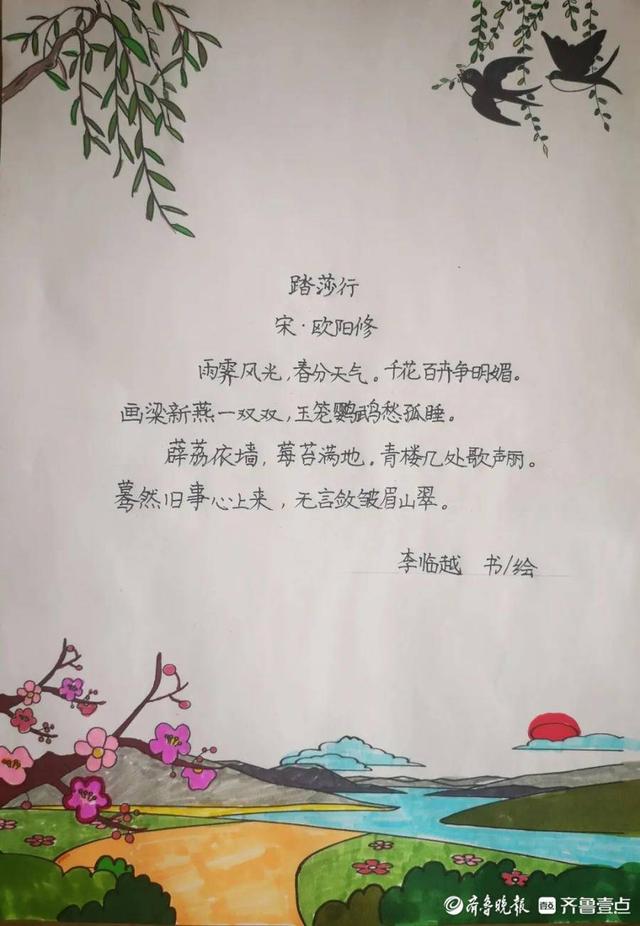 踏莎行
宋·欧阳修
雨霁风光，春分天气。千花百卉争明媚。
画梁新燕一双双，玉笼鹦鹉愁孤睡。
薜荔依墙，莓苔满地。青楼几处歌声丽。
蓦然旧事心上来，无言敛皱眉山翠。
李临越 书/绘
齐鲁晚报 齐鲁壹点